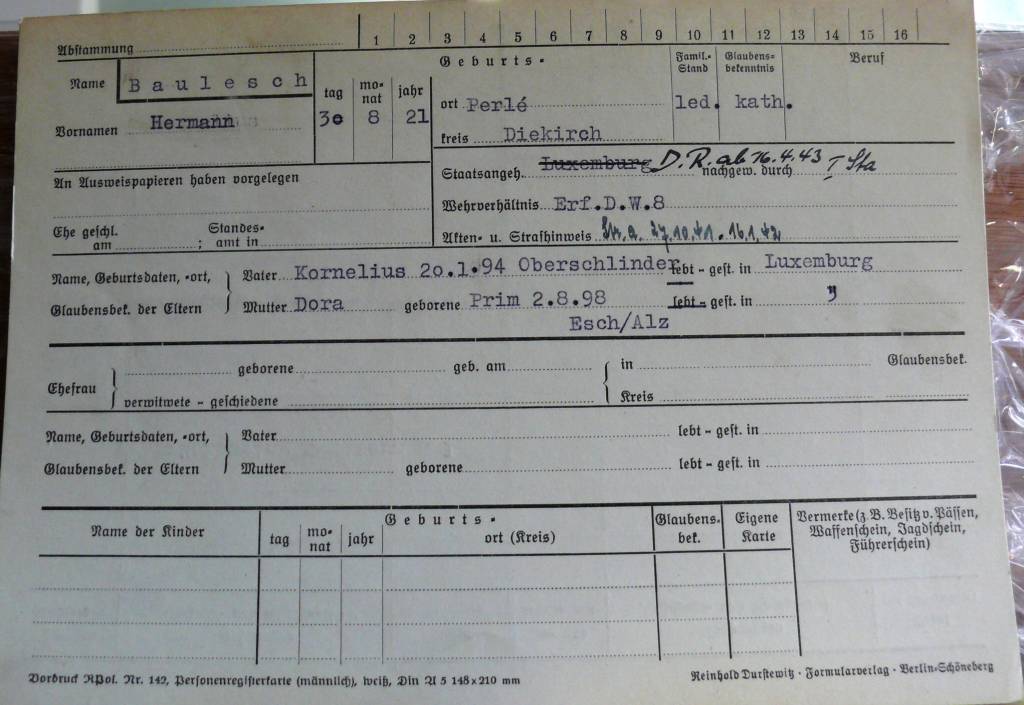 Abstammung 1 2 3 4 5 6 7 8 9 10 11 12 13 14 15 16
Name Baulesch tag mo-nat jahr Geburts- Famil.-Stand Glaubens-bekenntnis Beruf
ort Perlé led. kath.
Vornamen Hermann 30 8 21 kreis Diekirch
An Ausweispapieren haben vorgelegen
Staatsangeh. Luxemburg D.R. ab 16.4.43 nachgew. durch I Sta
Wehrverhältnis Erf.D.W.8
Ehe geschl. am ; Standes-amt in
Akten- u. Strafhinweis 27.10.41. 16.1.42
Name, Geburtsdaten, -ort, Vater Kornelius 20.1.94 Oberschlinder lebt - gest. in Luxemburg
Glaubensbek. der Eltern Mutter Dora geborene Prim 2.8.98 lebt - gest. in "
Esch/Alz
Ehefrau geborene geb. am in Glaubensbek.
verwitwete - geschiedene Kreis
Name, Geburtsdaten, -ort, Vater lebt - gest. in
Glaubensbek. der Eltern Mutter geborene lebt - gest. in
Name der Kinder Geburts- Glaubens-bek. Eigene Karte Vermerke (z. B. Besitz v. Pässen, Waffenschein, Jagdschein, Führerschein)
tag mo-nat jahr ort (Kreis)
Vordruck RPol. Nr. 142, Personenregisterkarte (männlich), weiß, Din A 5 148x210 mm
Reinhold Durstewitz · Formularverlag · Berlin-Schöneberg